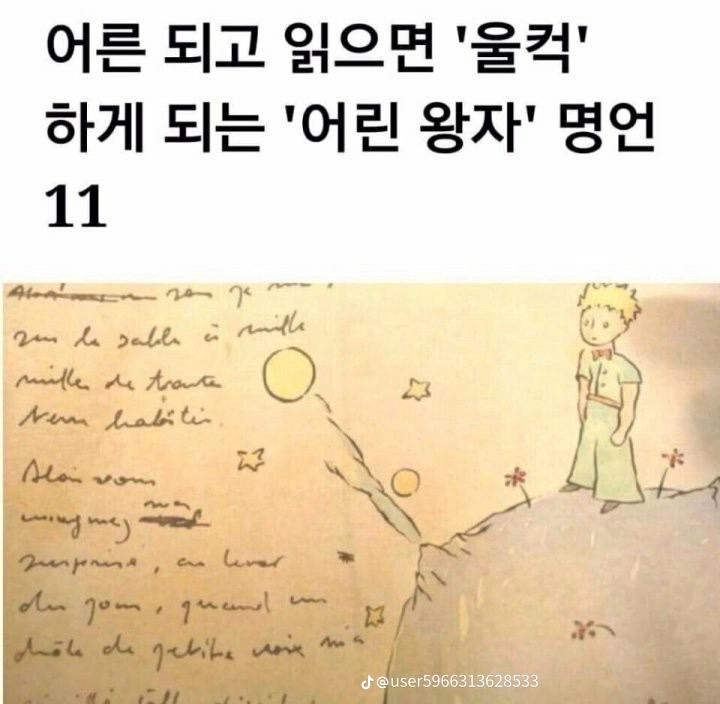 어른 되고 읽으면 '울컥'
하게 되는 '어린 왕자' 명언
11
sur le sable à mille
milles de toute
terre habitée.
Alors vous
imaginez ma
surprise, au lever
du jour, quand une
drôle de petite voix m'a
@user5966313628533